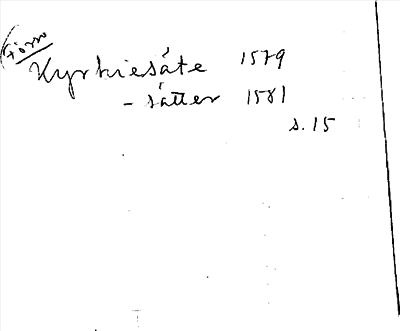 (Torro
Kyrkiesäte 1579
- sätter 1581
s. 15